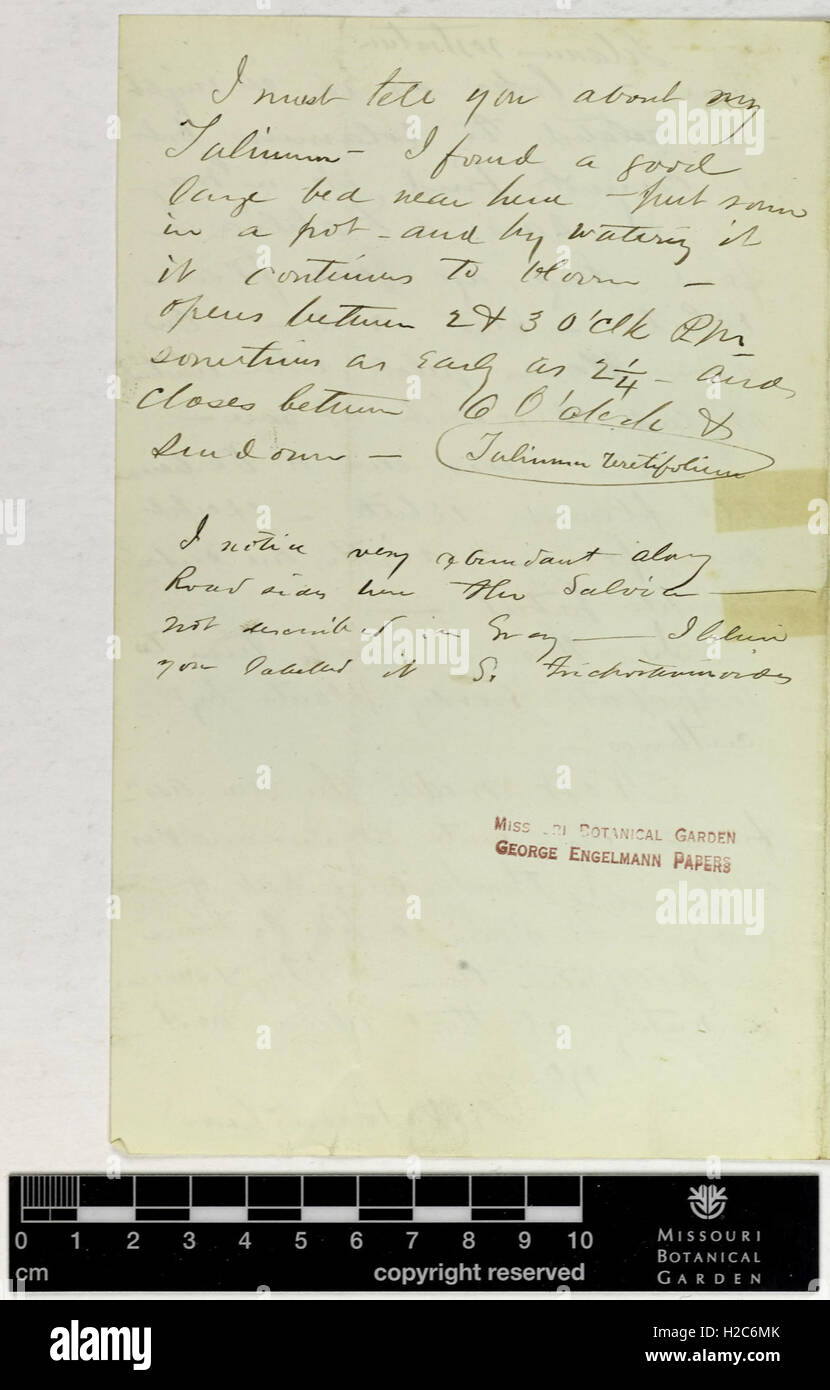 I must tell you about my
Talinum – I found a good
large bed near here – put some
in a pot – and by watering it
it continues to bloom –
opens between 2 & 3 O'clk Pm
sometimes as early as 2 1/4 – and
closes between 6 O'clock &
sundown –
Talinum teretifolium
I notice very abundant along
Road sides here the Salvia —
not described in Gray — I believe
you labelled it S. trichostemoides
MISS RI BOTANICAL GARDEN
GEORGE ENGELMANN PAPERS
0 1 2 3 4 5 6 7 8 9 10
cm
copyright reserved
MISSOURI
BOTANICAL
GARDEN
alamy
H2C6MK
www.alamy.com